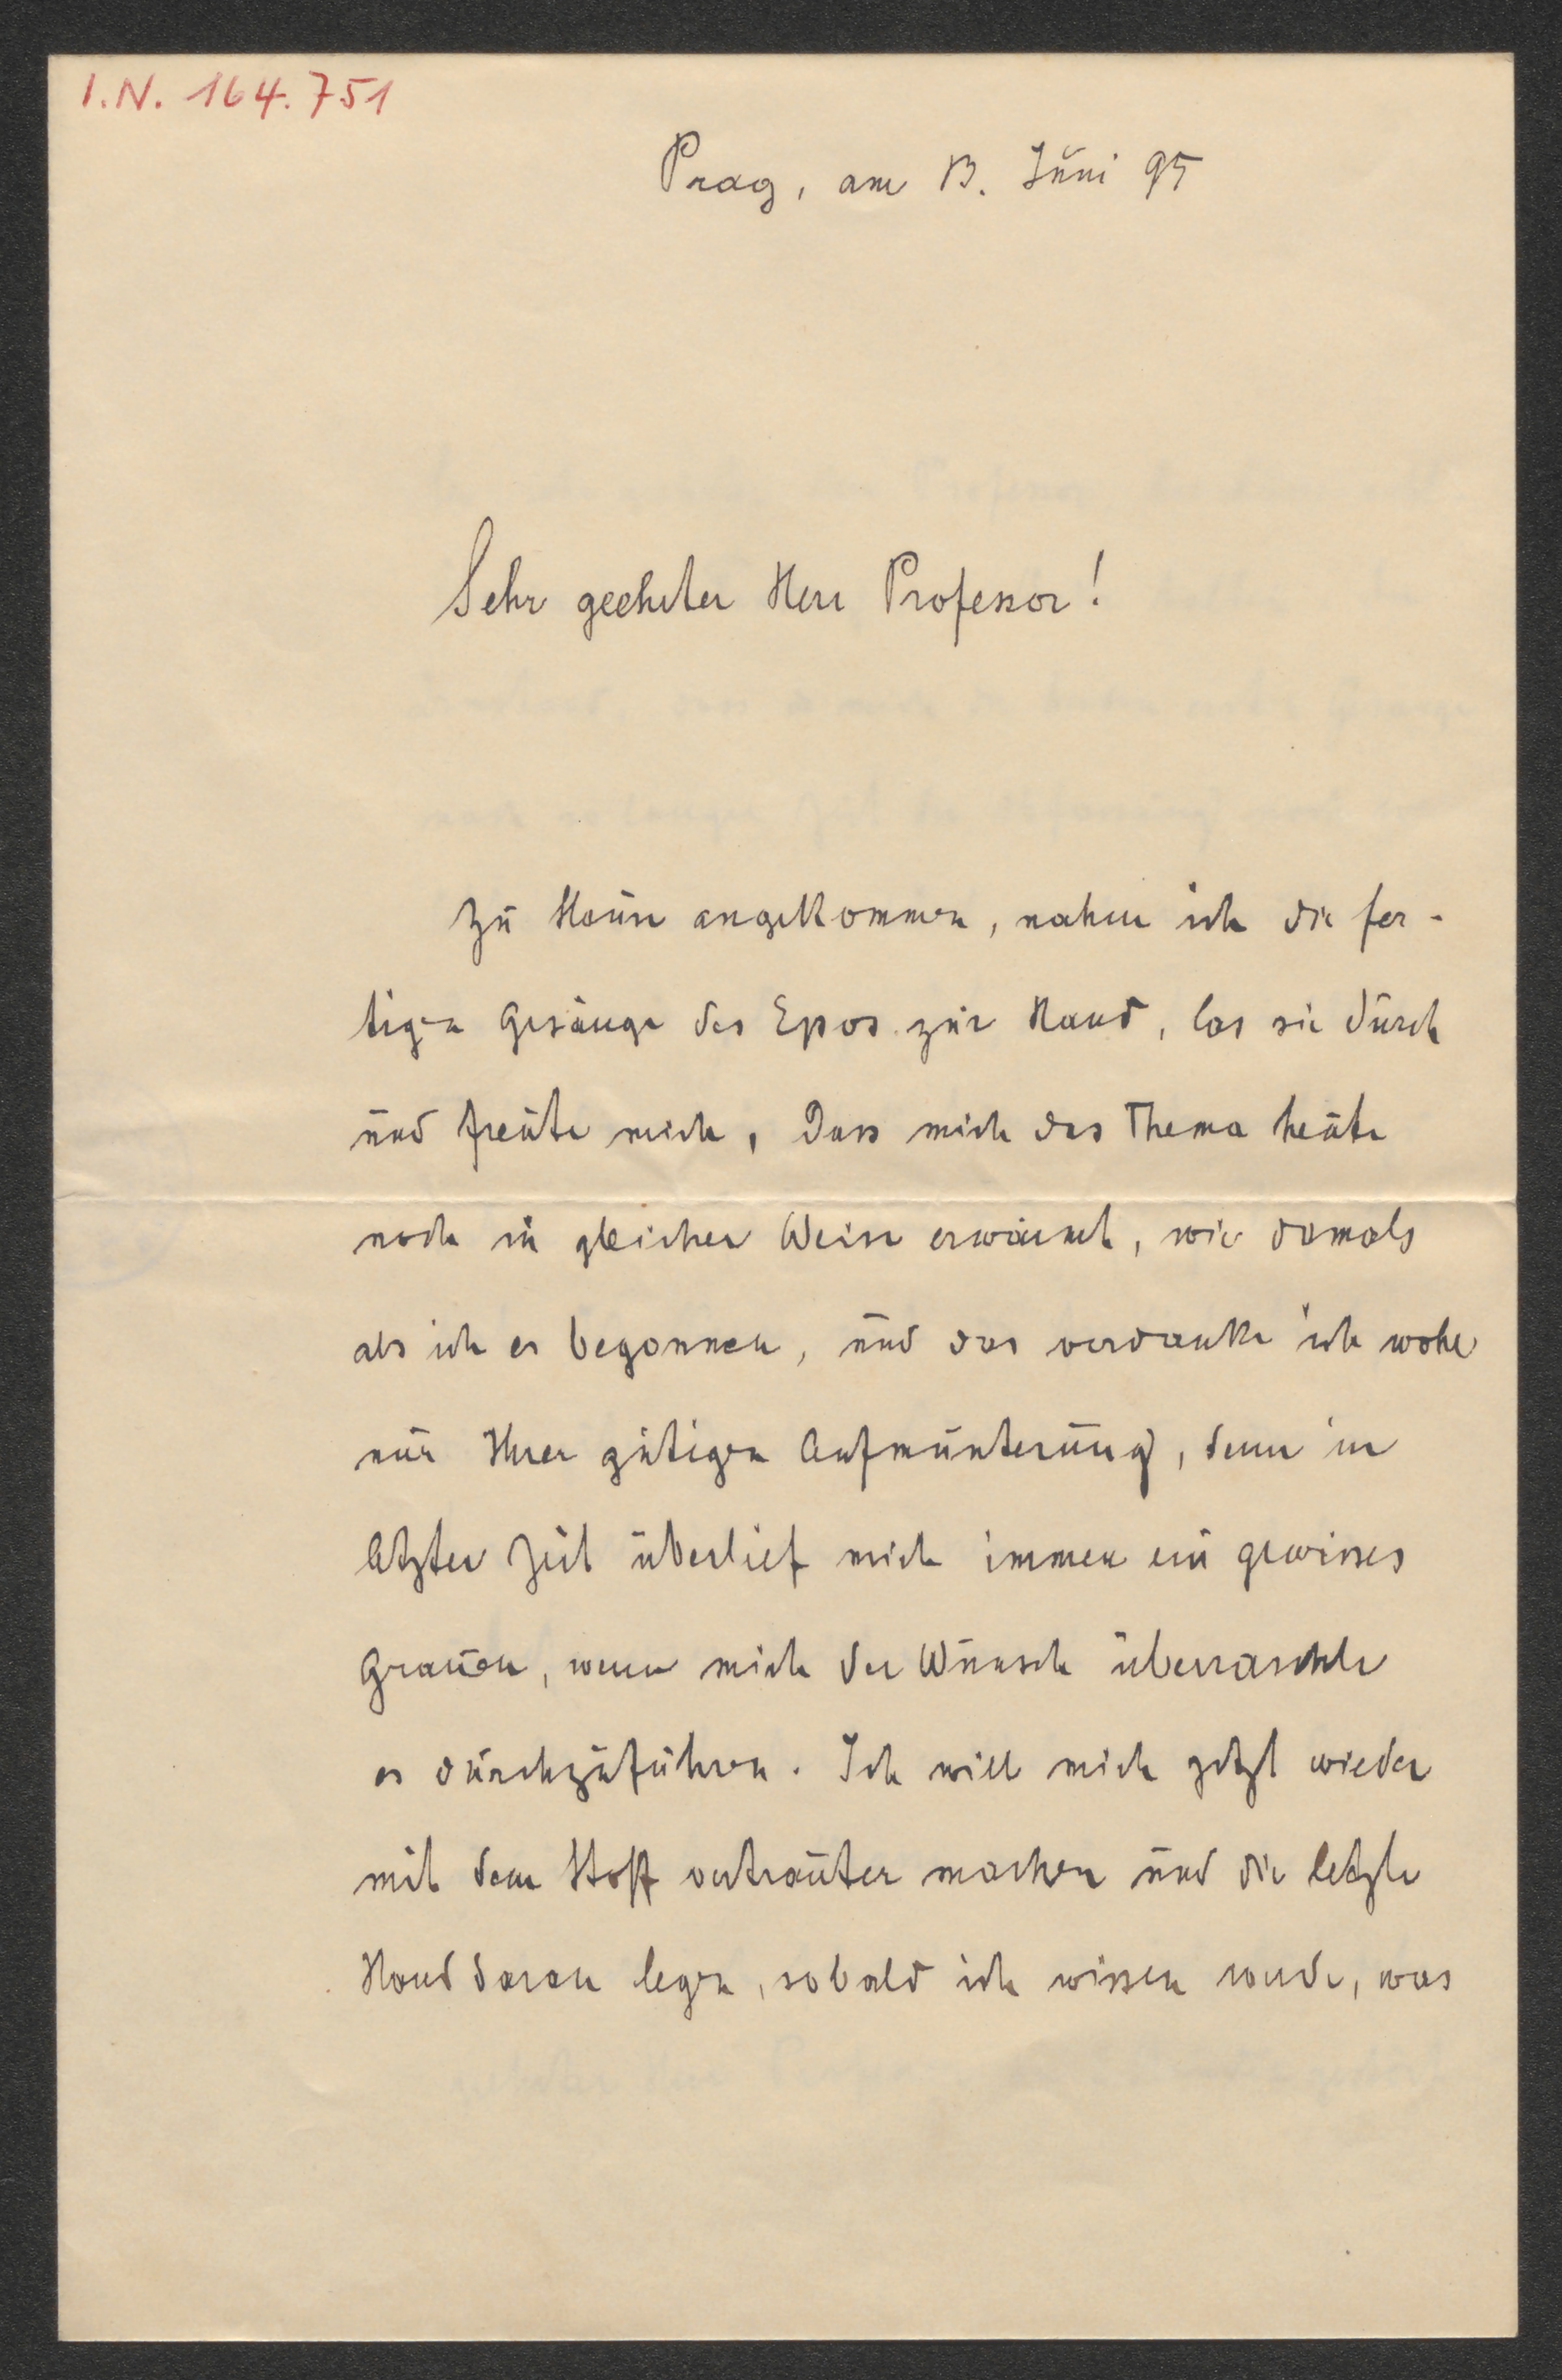 I.N. 164.751
Prag, am 13. Juni 95
Sehr geehrter Herr Professor!
Zu Hause angekommen, nahm ich die fer-
tigen Gesänge des Epos zur Hand, las sie durch
und freute mich, dass mich das Thema heute
noch in gleicher Weise erwärmt, wie damals
als ich es begonnen, und das verdanke ich wohl
nur Ihrer gütigen Aufmunterung, denn in
letzter Zeit überlief mich immer ein gewisses
Grauen, wenn mich der Wunsch überraschte
es durchzuführen. Ich will mich jetzt wieder
mit dem Stoff vertrauter machen und die letzte
Hand daran legen, sobald ich wissen werde, was